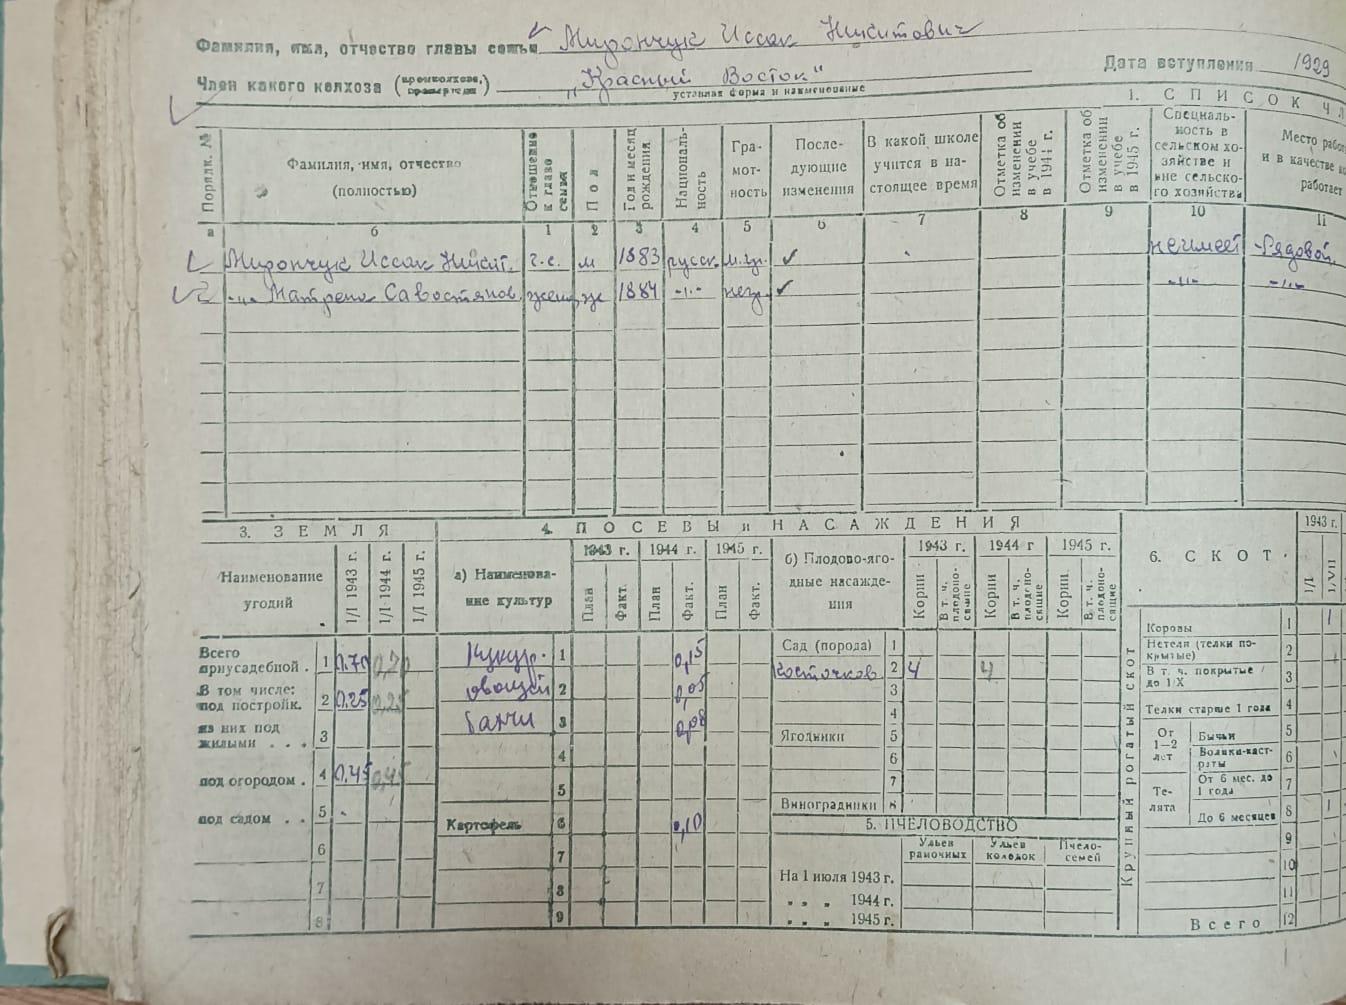 Фамилия, имя, отчество главы семьи Мирончук Иссак Никитович
Член какого колхоза (промколхоза, промартели) „Красный Восток"
уставная форма и наименование
Дата вступления 1929
1. СПИСОК ЧЛ
Порядк. №
Фамилия, имя, отчество (полностью)
Отношение к главе семьи
Пол
Год и месяц рождения
Националь-ность
Гра-мот-ность
После-дующие изменения
В какой школе учится в на-стоящее время
Отметка об изменении в учебе в 1944 г.
Отметка об изменении в учебе в 1945 г.
Специаль-ность в сельском хо-зяйстве и вне сельско-го хозяйства
Место рабо
и в качестве к
работает
а б 1 2 3 4 5 6 7 8 9 10 11
Мирончук Иссак Никит. г.с. м 1883 русск. м.гр. ✓ неимеет Рядовой
2 -"- Матрена Савостянов. жен. ж 1884 -"- негр. ✓ -"- -"-
3. ЗЕМЛЯ
Наименование угодий
I/I 1943 г.
I/I 1944 г.
I/I 1945 г.
Всего приусадебной . 1 0.70 0,70
В том числе: под постройк. 2 0.25 0,25
из них под жилыми . . . 3
под огородом . 4 0.45 0,45
под садом . . 5
6
7
8
4. ПОСЕВЫ и НАСАЖДЕНИЯ
а) Наименова-ние культур
1943 г. 1944 г. 1945 г.
План Факт. План Факт. План Факт.
Кукур. 1 0,15
овощей 2 0,05
3 0,08
4
5
Картофель 6 0,10
7
8
9
б) Плодово-яго-дные насажде-ния
1943 г. 1944 г 1945 г.
Корни В т. ч. плодоно-сящие Корни В т. ч. плодоно-сящие Корни. В т. ч. плодоно-сящие
Сад (порода) 1
Косточков. 2 4 4
3
4
Ягодники 5
6
7
Виноградники 8
5. ПЧЕЛОВОДСТВО
Ульев рамочных
Ульев колодок
Пчело-семей
На 1 июля 1943 г.
„ „ „ 1944 г.
„ „ „ 1945 г.
6. СКОТ
1943 г.
I/I I/VII
Крупный рогатый скот
Коровы 1 1
Нетели (телки по-крытые) 2
В т. ч. покрытые до 1/X 3
Телки старше 1 года 4
От 1—2 лет
Бычки 5
Волики-каст-раты 6
Те-лята
От 6 мес. до 1 года 7
До 6 месяцев 8 1
9
10
11
Всего 12